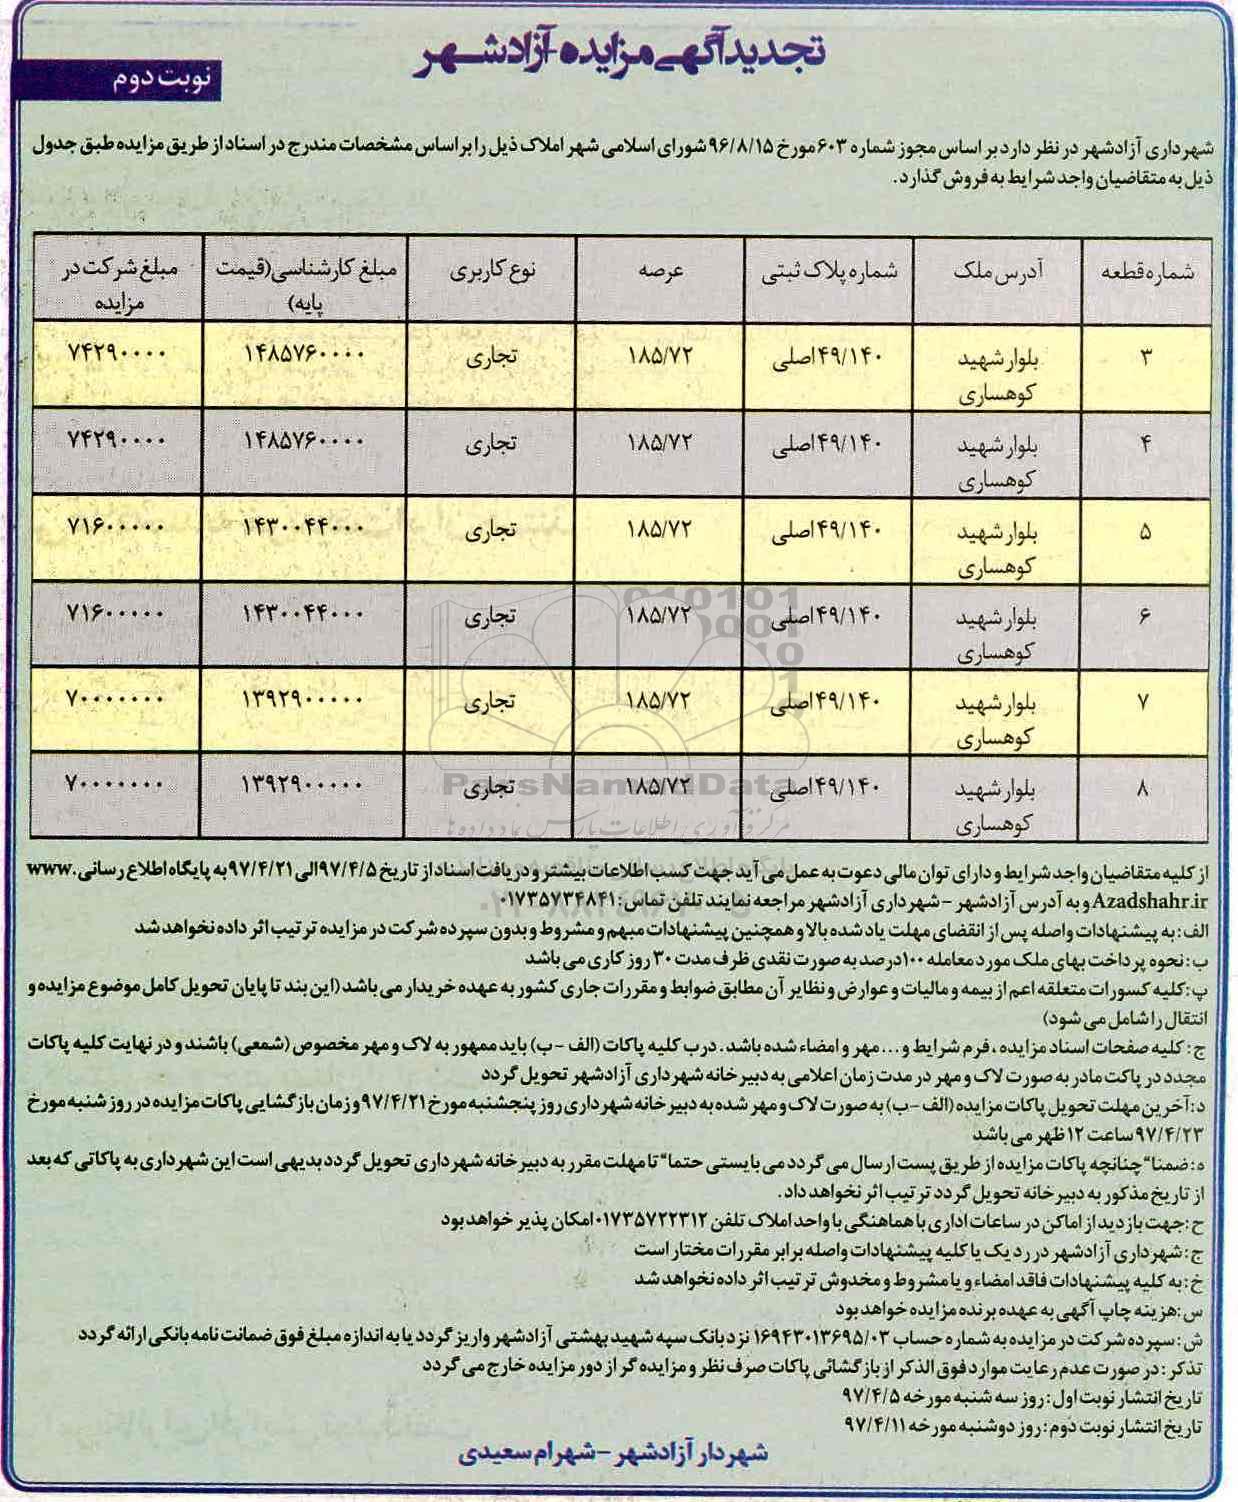 تجدیدآگهی مزایده آزادشهر
نوبت دوم
شهرداری آزادشهر در نظر دارد بر اساس مجوز شماره ۶۰۳ مورخ ۹۶/۸/۱۵ شورای اسلامی شهر املاک ذیل را بر اساس مشخصات مندرج در اسناد از طریق مزایده طبق جدول
ذیل به متقاضیان واجد شرایط به فروش گذارد.
شماره قطعه | آدرس ملک | شماره پلاک ثبتی | عرصه | نوع کاربری | مبلغ کارشناسی(قیمت پایه) | مبلغ شرکت در مزایده
۳ | بلوار شهید کوهساری | ۴۹/۱۴۰اصلی | ۱۸۵/۷۲ | تجاری | ۱۴۸۵۷۶۰۰۰۰ | ۷۴۲۹۰۰۰۰
۴ | بلوار شهید کوهساری | ۴۹/۱۴۰اصلی | ۱۸۵/۷۲ | تجاری | ۱۴۸۵۷۶۰۰۰۰ | ۷۴۲۹۰۰۰۰
۵ | بلوار شهید کوهساری | ۴۹/۱۴۰اصلی | ۱۸۵/۷۲ | تجاری | ۱۴۳۰۰۴۴۰۰۰ | ۷۱۶۰۰۰۰۰
۶ | بلوار شهید کوهساری | ۴۹/۱۴۰اصلی | ۱۸۵/۷۲ | تجاری | ۱۴۳۰۰۴۴۰۰۰ | ۷۱۶۰۰۰۰۰
۷ | بلوار شهید کوهساری | ۴۹/۱۴۰اصلی | ۱۸۵/۷۲ | تجاری | ۱۳۹۲۹۰۰۰۰۰ | ۷۰۰۰۰۰۰۰
۸ | بلوار شهید کوهساری | ۴۹/۱۴۰اصلی | ۱۸۵/۷۲ | تجاری | ۱۳۹۲۹۰۰۰۰۰ | ۷۰۰۰۰۰۰۰
ParsNamadData
مرکز فرآوری اطلاعات پارس نماد داده ها
از کلیه متقاضیان واجد شرایط و دارای توان مالی دعوت به عمل می آید جهت کسب اطلاعات بیشتر و دریافت اسناد از تاریخ ۹۷/۴/۵ الی ۹۷/۴/۲۱ به پایگاه اطلاع رسانی www.
Azadshahr.ir و به آدرس آزادشهر – شهرداری آزادشهر مراجعه نمایند تلفن تماس: ۰۱۷۳۵۷۳۴۸۴۱
الف: به پیشنهادات واصله پس از انقضای مهلت یاد شده بالا و همچنین پیشنهادات مبهم و مشروط و بدون سپرده شرکت در مزایده ترتیب اثر داده نخواهد شد
ب: نحوه پرداخت بهای ملک مورد معامله ۱۰۰درصد به صورت نقدی ظرف مدت ۳۰ روز کاری می باشد
پ: کلیه کسورات متعلقه اعم از بیمه و مالیات و عوارض و نظایر آن مطابق ضوابط و مقررات جاری کشور به عهده خریدار می باشد (این بند تا پایان تحویل کامل موضوع مزایده و
انتقال را شامل می شود)
ج: کلیه صفحات اسناد مزایده، فرم شرایط و... مهر و امضاء شده باشد. درب کلیه پاکات (الف – ب) باید ممهور به لاک و مهر مخصوص (شمعی) باشند و در نهایت کلیه پاکات
مجدد در پاکت مادر به صورت لاک و مهر در مدت زمان اعلامی به دبیرخانه شهرداری آزادشهر تحویل گردد
د: آخرین مهلت تحویل پاکات مزایده (الف – ب) به صورت لاک و مهر شده به دبیرخانه شهرداری روز پنجشنبه مورخ ۹۷/۴/۲۱ و زمان بازگشایی پاکات مزایده در روز شنبه مورخ
۹۷/۴/۲۳ ساعت ۱۲ ظهر می باشد
ه: ضمنا" چنانچه پاکات مزایده از طریق پست ارسال می گردد می بایستی حتما" تا مهلت مقرر به دبیرخانه شهرداری تحویل گردد بدیهی است این شهرداری به پاکاتی که بعد
از تاریخ مذکور به دبیرخانه تحویل گردد ترتیب اثر نخواهد داد.
ح: جهت بازدید از اماکن در ساعات اداری با هماهنگی با واحد املاک تلفن ۰۱۷۳۵۷۲۲۳۱۲ امکان پذیر خواهد بود
ج: شهرداری آزادشهر در رد یک یا کلیه پیشنهادات واصله برابر مقررات مختار است
خ: به کلیه پیشنهادات فاقد امضاء و یا مشروط و مخدوش ترتیب اثر داده نخواهد شد
س: هزینه چاپ آگهی به عهده برنده مزایده خواهد بود
ش: سپرده شرکت در مزایده به شماره حساب ۱۶۹۴۳۰۱۳۶۹۵/۰۳ نزد بانک سپه شهید بهشتی آزادشهر واریز گردد یا به اندازه مبلغ فوق ضمانت نامه بانکی ارائه گردد
تذکر: در صورت عدم رعایت موارد فوق الذکر از بازگشائی پاکات صرف نظر و مزایده گر از دور مزایده خارج می گردد
تاریخ انتشار نوبت اول: روز سه شنبه مورخه ۹۷/۴/۵
تاریخ انتشار نوبت دوم: روز دوشنبه مورخه ۹۷/۴/۱۱
شهردار آزادشهر – شهرام سعیدی